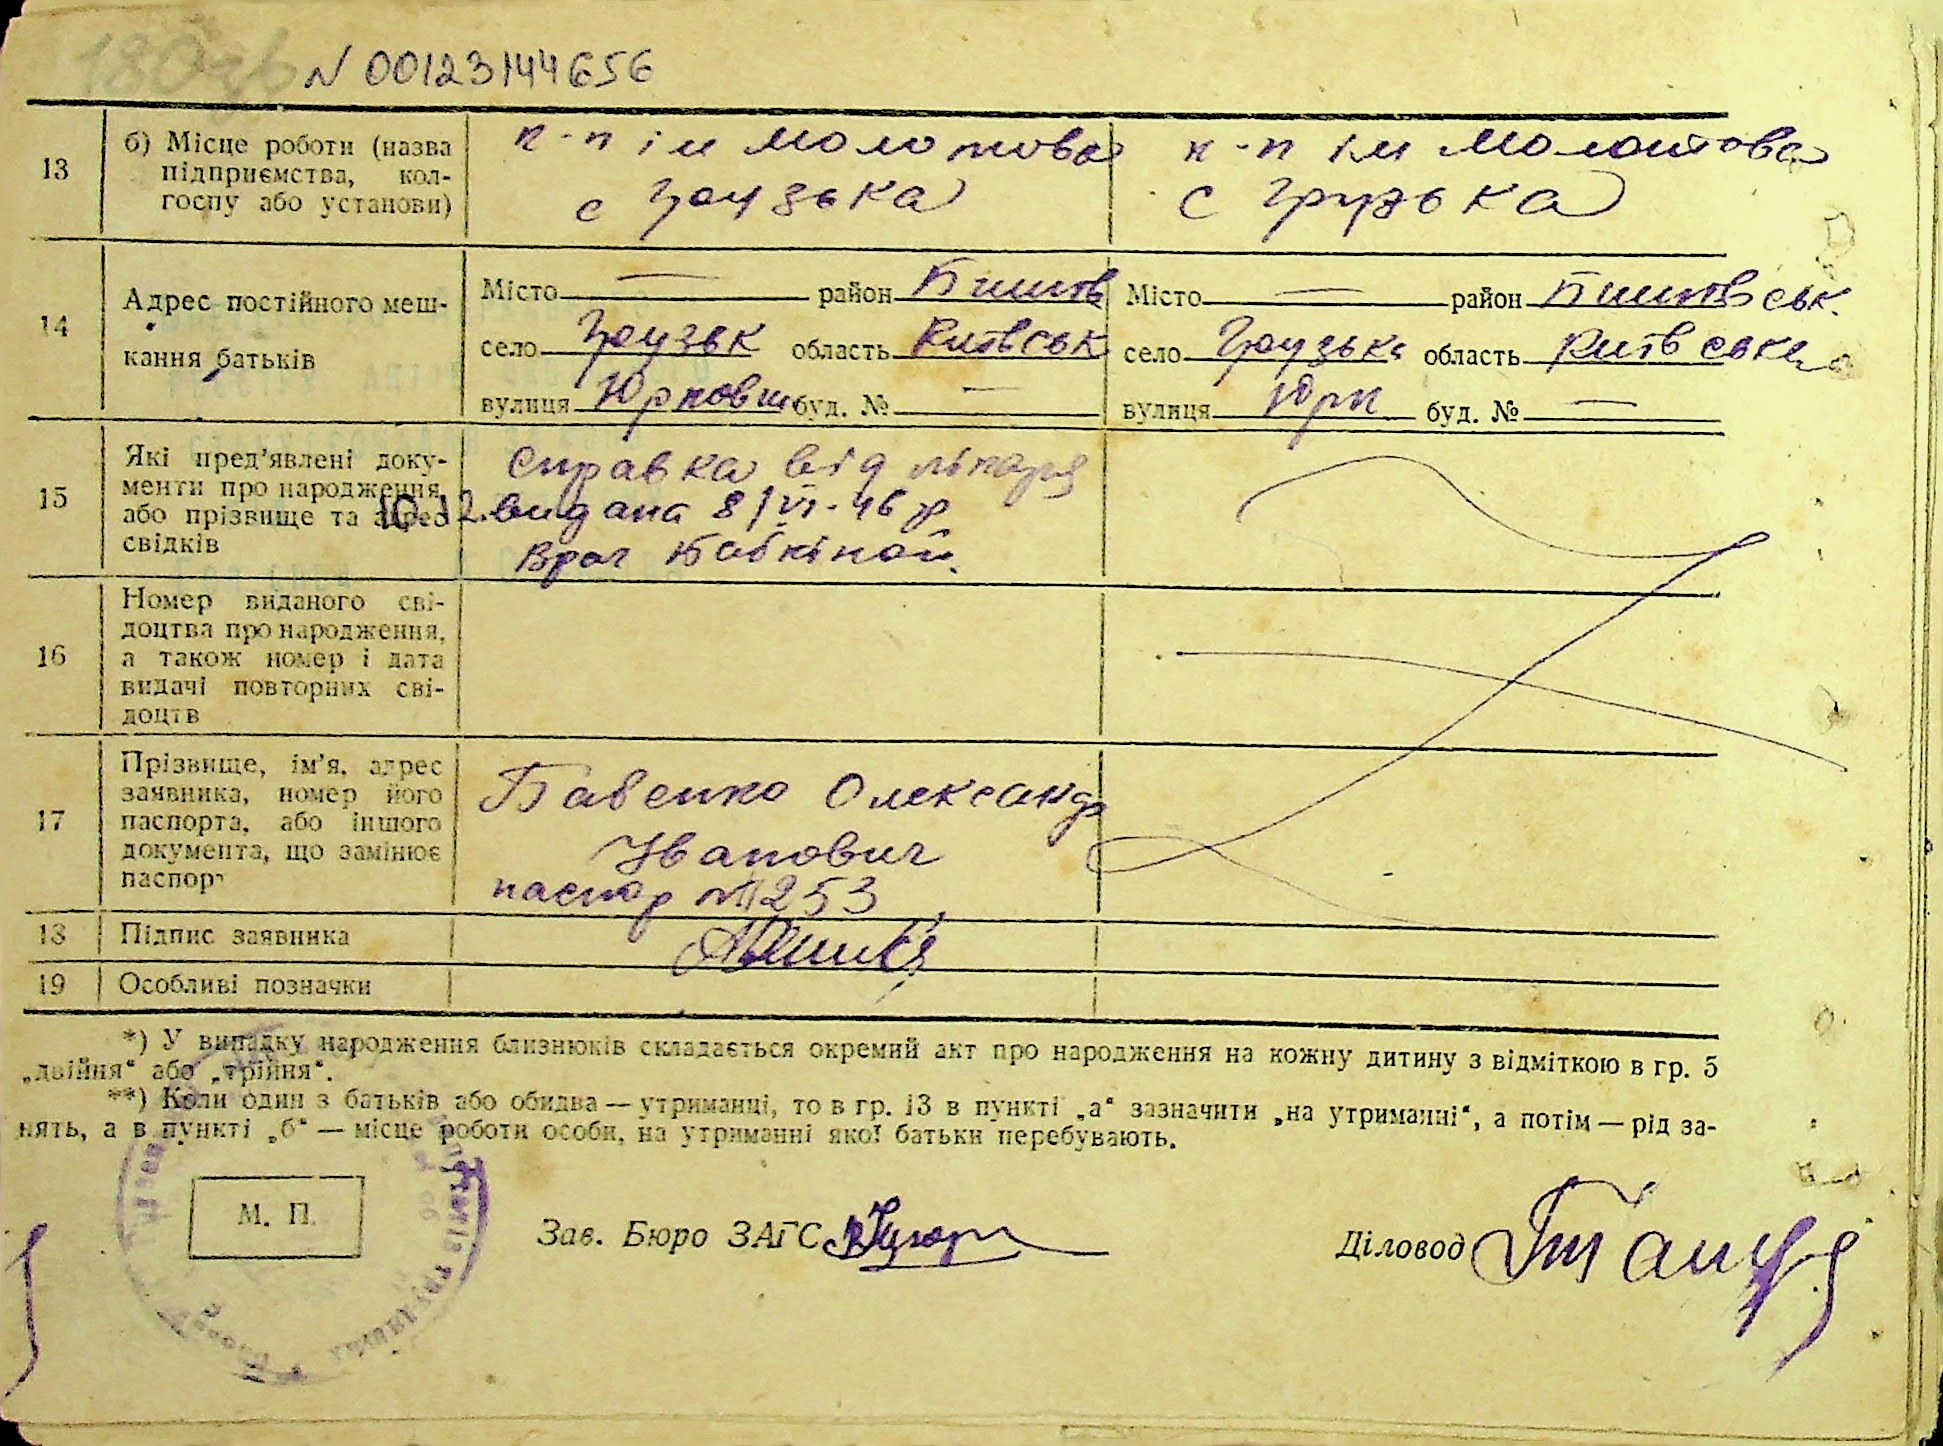 180зв N 00123144656
13 б) Місце роботи (назва підприємства, кол-
госпу або установи)
к-п ім Молотова
с Грузька
к-п ім Молотова
с Грузька
14 Адрес постійного меш-
кання батьків
Місто — район Бишів
село Грузьк область Київськ
вулиця Юрковш буд. № —
Місто — район Бишівськ.
село Грузька область Київська
вулиця Юрк буд. № —
15 Які пред'явлені доку-
менти про народження
або прізвище та адрес
свідків
10.12.
Справка від лікаря
видана 8/VI-46 р
Врач Бабкіной.
16 Номер виданого сві-
доцтва про народження,
а також номер і дата
видачі повторних сві-
доцтв
17 Прізвище, ім'я, адрес
заявника, номер його
паспорта, або іншого
документа, що замінює
паспорт
Бавенко Олександр
Іванович
паспор №253
18 Підпис заявника
19 Особливі позначки
*) У випадку народження близнюків складається окремий акт про народження на кожну дитину з відміткою в гр. 5
„двійня“ або „трійня“.
**) Коли один з батьків або обидва — утриманці, то в гр. 13 в пункті „а“ зазначити „на утриманні“, а потім — рід за-
нять, а в пункті „б“ — місце роботи особи, на утриманні якої батьки перебувають.
М. П.
Зав. Бюро ЗАГС
Діловод